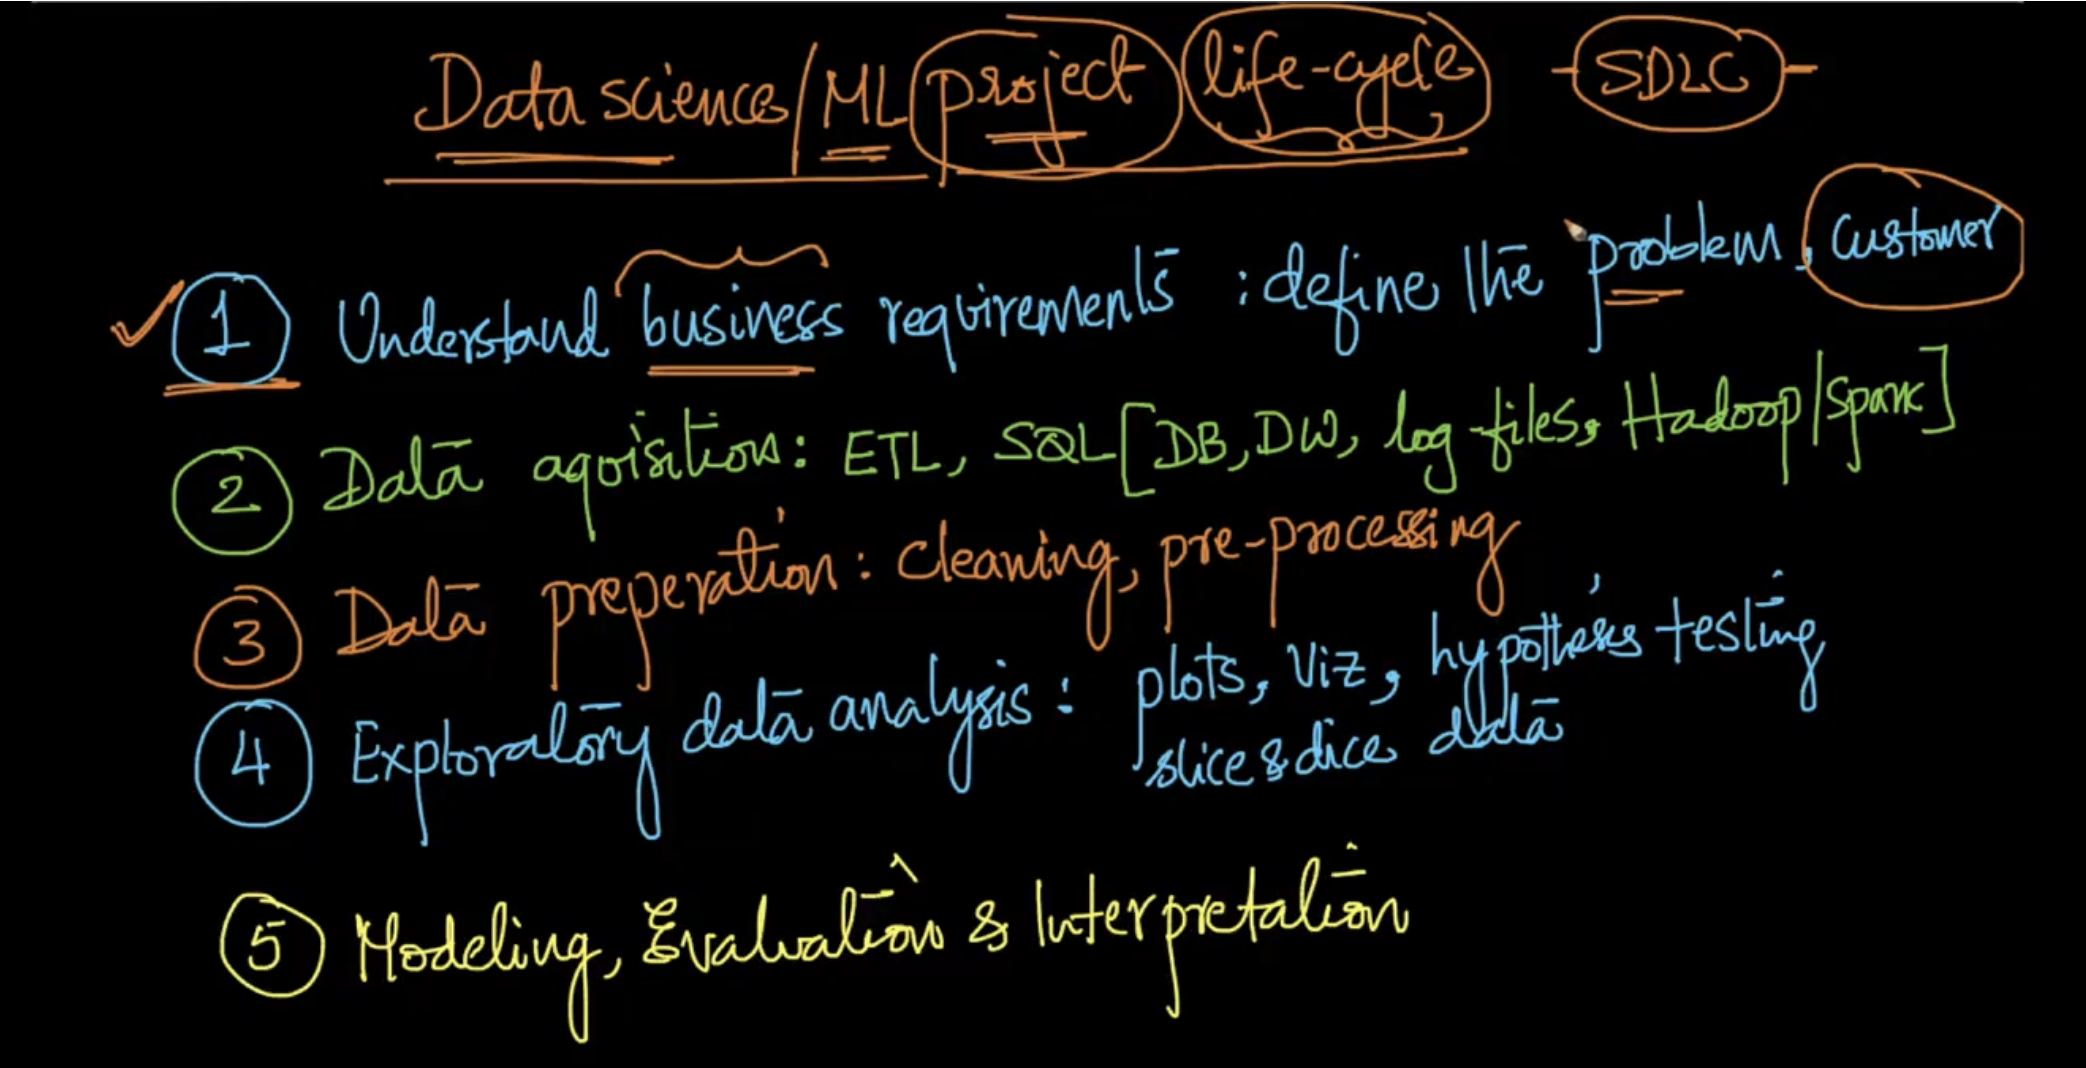 Data science/ML project life-cycle - SDLC -
1 Understand business requirements : define the problem, customer
2 Data aquisition: ETL, SQL [DB, DW, log-files, Hadoop/Spark]
3 Data preperation: cleaning, pre-processing
4 Exploratory data analysis: plots, Viz, hypothesis testing
slice & dice data
5 Modeling, Evaluation & Interpretation